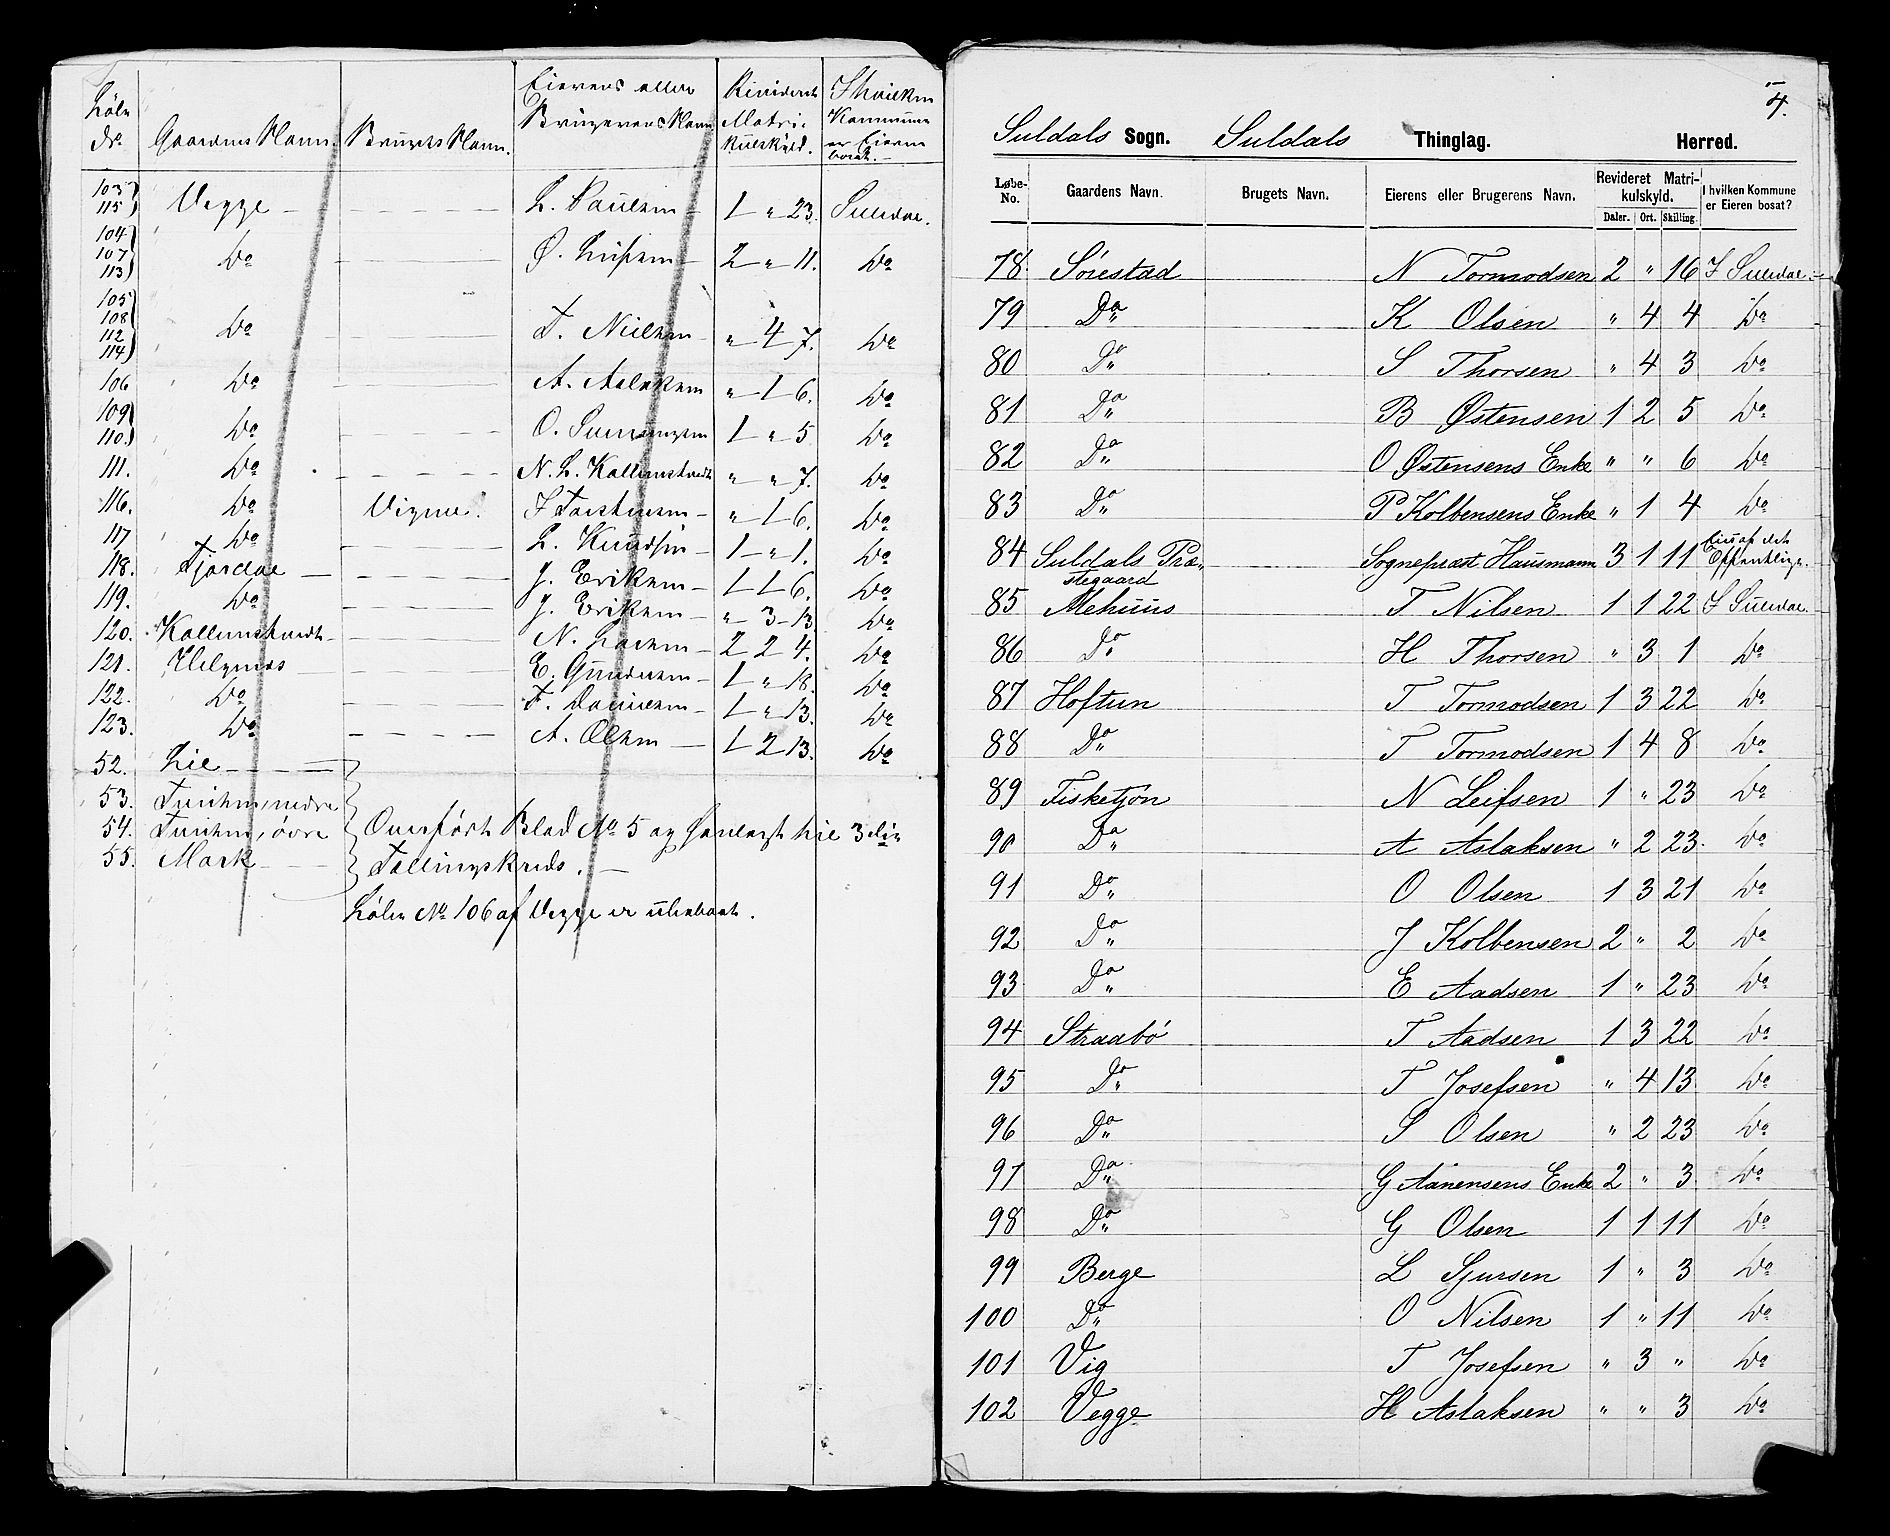 Løbe No. Gaardens Navn. Brugets Navn. Eierens eller Brugerens Navn Revideret Matri-kulskyld. I hvilken Kommune er Eieren bosat.
103 115 Vegge — 1 " 23. Suldal.
104 107 113 Do 2 " 11. Do
105 108 112 114 Do T. Nielsen " 4 7. Do
106 Do A. Aslaksen " 1 6. Do
109 110. Do O. 1 " 5 Do
111. Do N. L. Kallemtvedt " " 7. Do
116. Do " 1 6. Do
117 Do L. Knudsen 1 " 1. Do
118. J. Eriksen 1 1 6. Do
119. Do J. Eriksen " 3 13 Do
120. Kallemtvedt N. Larsen 2 2 4. Do
121. Helgenæs E. Gundersen 1 " 18. Do
122. Do T. 1 " 13. Do
123. Do A. Olsen 1 2 13. Do
52. Lie
53. nedre
54. øvre Overført Blad No 5 og henlagt til 3die
55. Mark Tællingskreds.
Løbe No 106 af Vegge er ubeboet.
4.
Suldals Sogn. Suldals Thinglag. Herred.
Løbe-No. Gaardens Navn. Brugets Navn. Eierens eller Brugerens Navn. Revideret Matri-kulskyld. Daler. Ort. Skilling. I hvilken Kommune er Eieren bosat?
78 Sørestad N Tormodsen 2 " 16 I Suldal.
79 Do K Olsen " 4 4 Do
80 Do S Thorsen " 4 3 Do
81 Do B Østensen 1 2 5 Do
82 Do O Østensens Enke " " 6 Do
83 Do P Kolbensens Enke " 1 4 Do
84 Suldals Præstegaard Sognepræst Hausmann 3 1 11 Eies af det Offentlige.
85 Mehuus T Nilsen 1 1 22 I Suldal.
86 Do H Thorsen " 3 1 Do
87 Hoftun T Tormodsen 1 3 22 Do
88 Do T Tormodsen 1 4 8 Do
89 Fisketjøn N Leifsen 1 " 23 Do
90 Do A Aslaksen " 2 23. Do
91 Do O Olsen 1 3 21 Do
92 Do J Kolbensen 2 " 2 Do
93 Do E Aadsen 1 " 23 Do
94 Straabø T Aadsen 1 3 22 Do
95 Do T Josefsen " 4 13 Do
96 Do S Olsen " 2 23 Do
97 Do G Aanensens Enke 2 " 3 Do
98 Do G Olsen 1 1 11 Do
99 Berge L Sjursen 1 " 3 Do
100 Do O Nilsen 1 " 11 Do
101 Vig T Josefsen " 3 " Do
102 Vegge H Aslaksen " " 3 Do